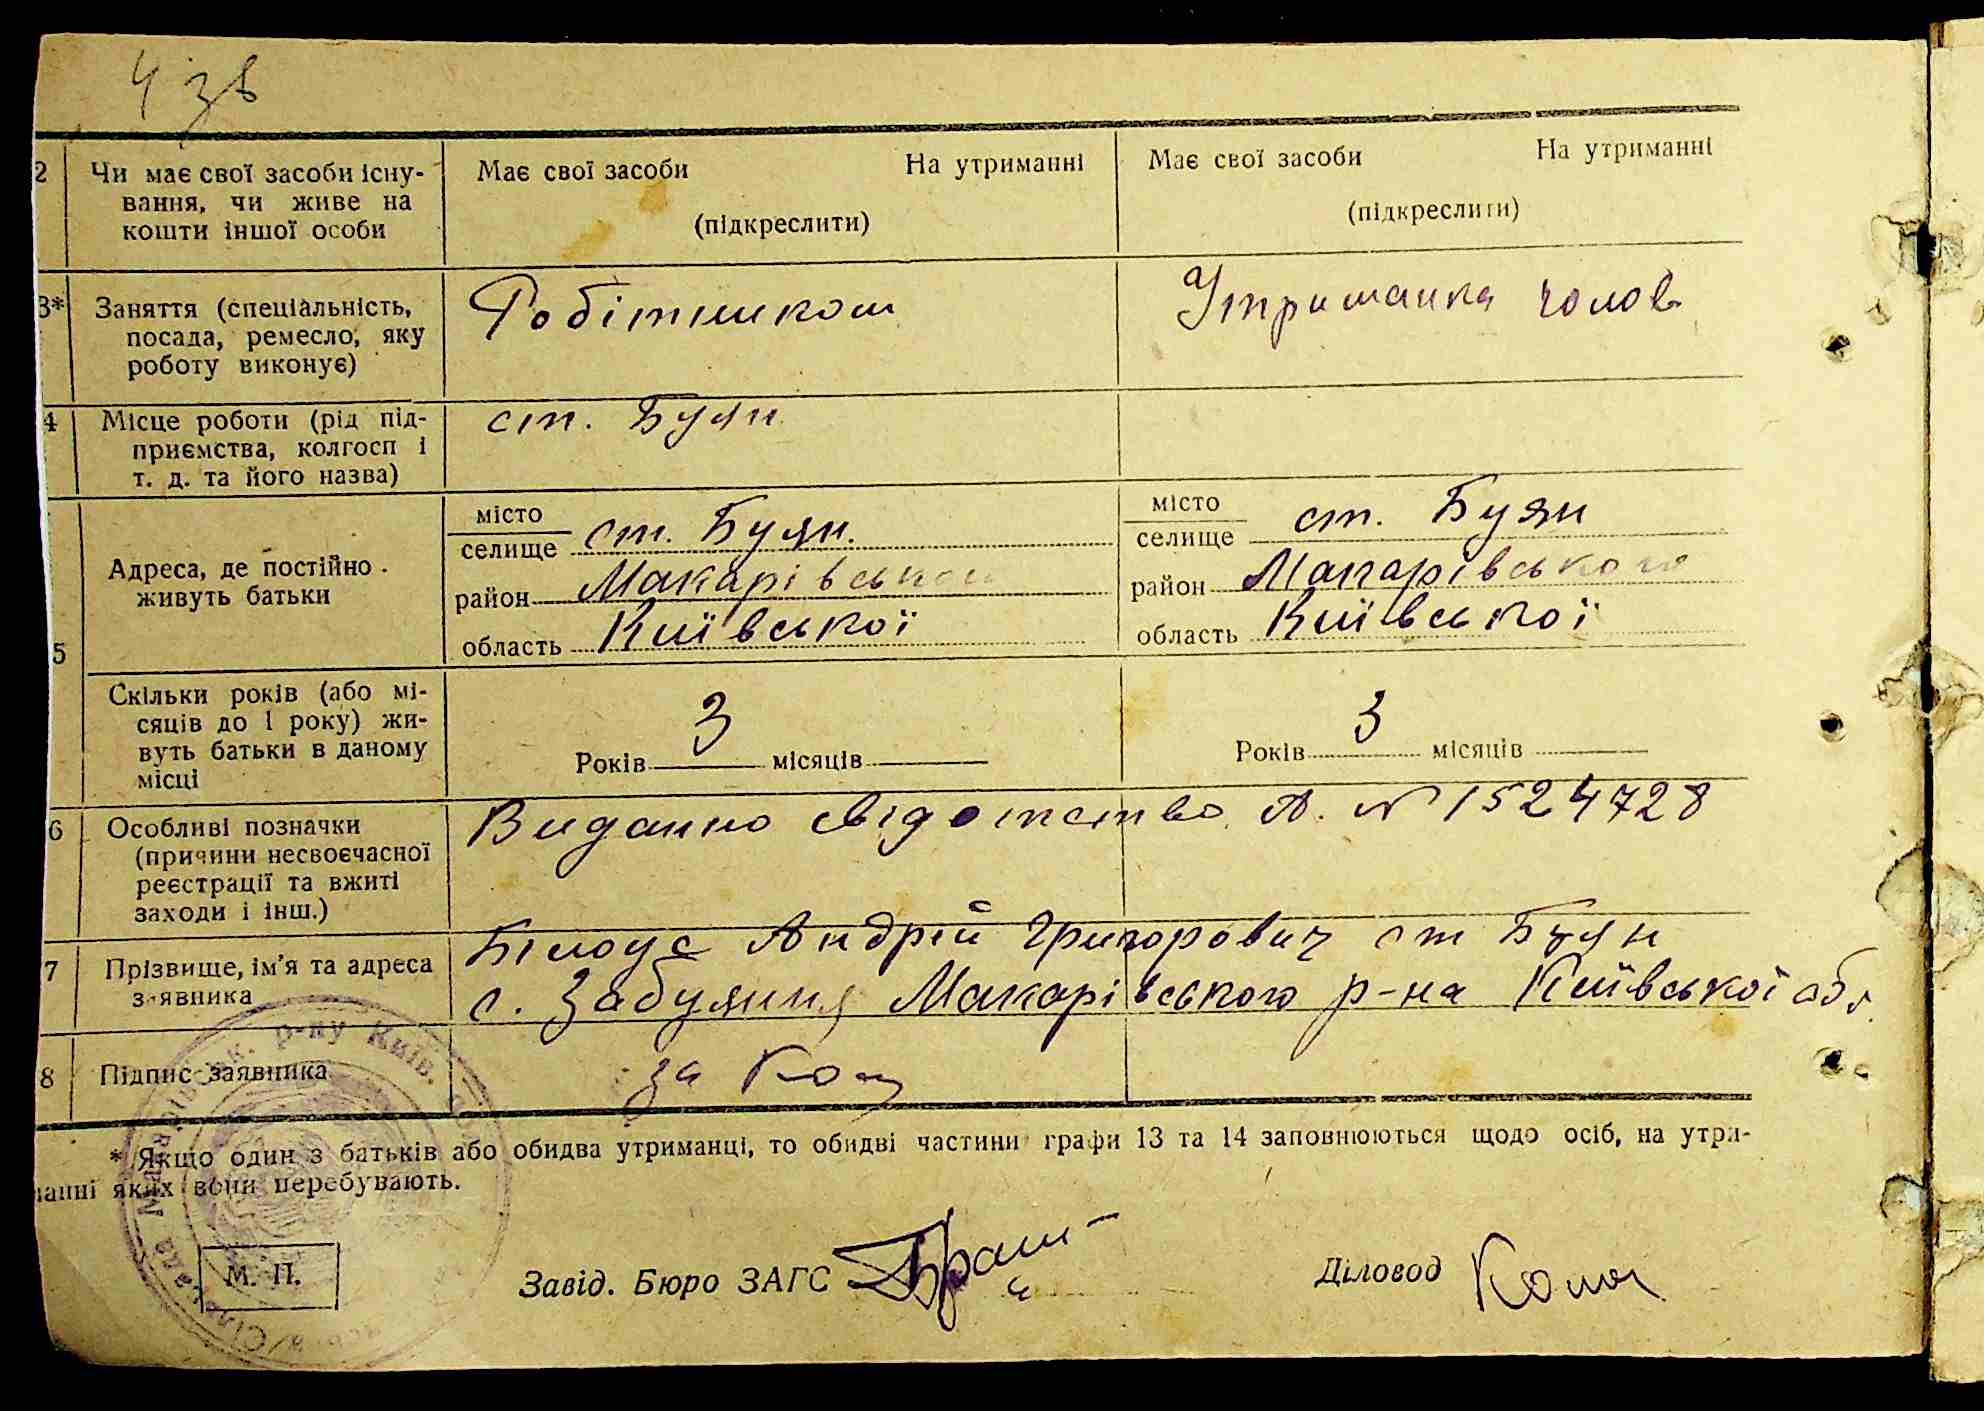 4 зв
2 Чи має свої засоби існу- Має свої засоби На утриманні Має свої засоби На утриманні
вання, чи живе на (підкреслити) (підкреслити)
кошти іншої особи
3* Заняття (спеціальність, Робітником Утриманка чолов
посада, ремесло, яку
роботу виконує)
4 Місце роботи (рід під- ст. Буян
приємства, колгосп і
т. д. та його назва)
місто місто
селище ст. Буян. селище ст. Буян
5 Адреса, де постійно район Макарівського район Макарівського
живуть батьки область Київської область Київської
Скільки років (або мі-
сяців до 1 року) жи-
вуть батьки в даному Років 3 місяців Років 3 місяців
місці
6 Особливі позначки Виданно свідотство А. № 1524728
(причини несвоєчасної
реєстрації та вжиті
заходи і інш.)
7 Прізвище, ім'я та адреса Білоус Андрій Григорович ст Буян
заявника с. Забуяння Макарівського р-на Київської обл.
8 Підпис заявника за
* Якщо один з батьків або обидва утриманці, то обидві частини графи 13 та 14 заповнюються щодо осіб, на утри-
манні яких вони перебувають.
М. П. Завід. Бюро ЗАГС Діловод
р-ну Київ.